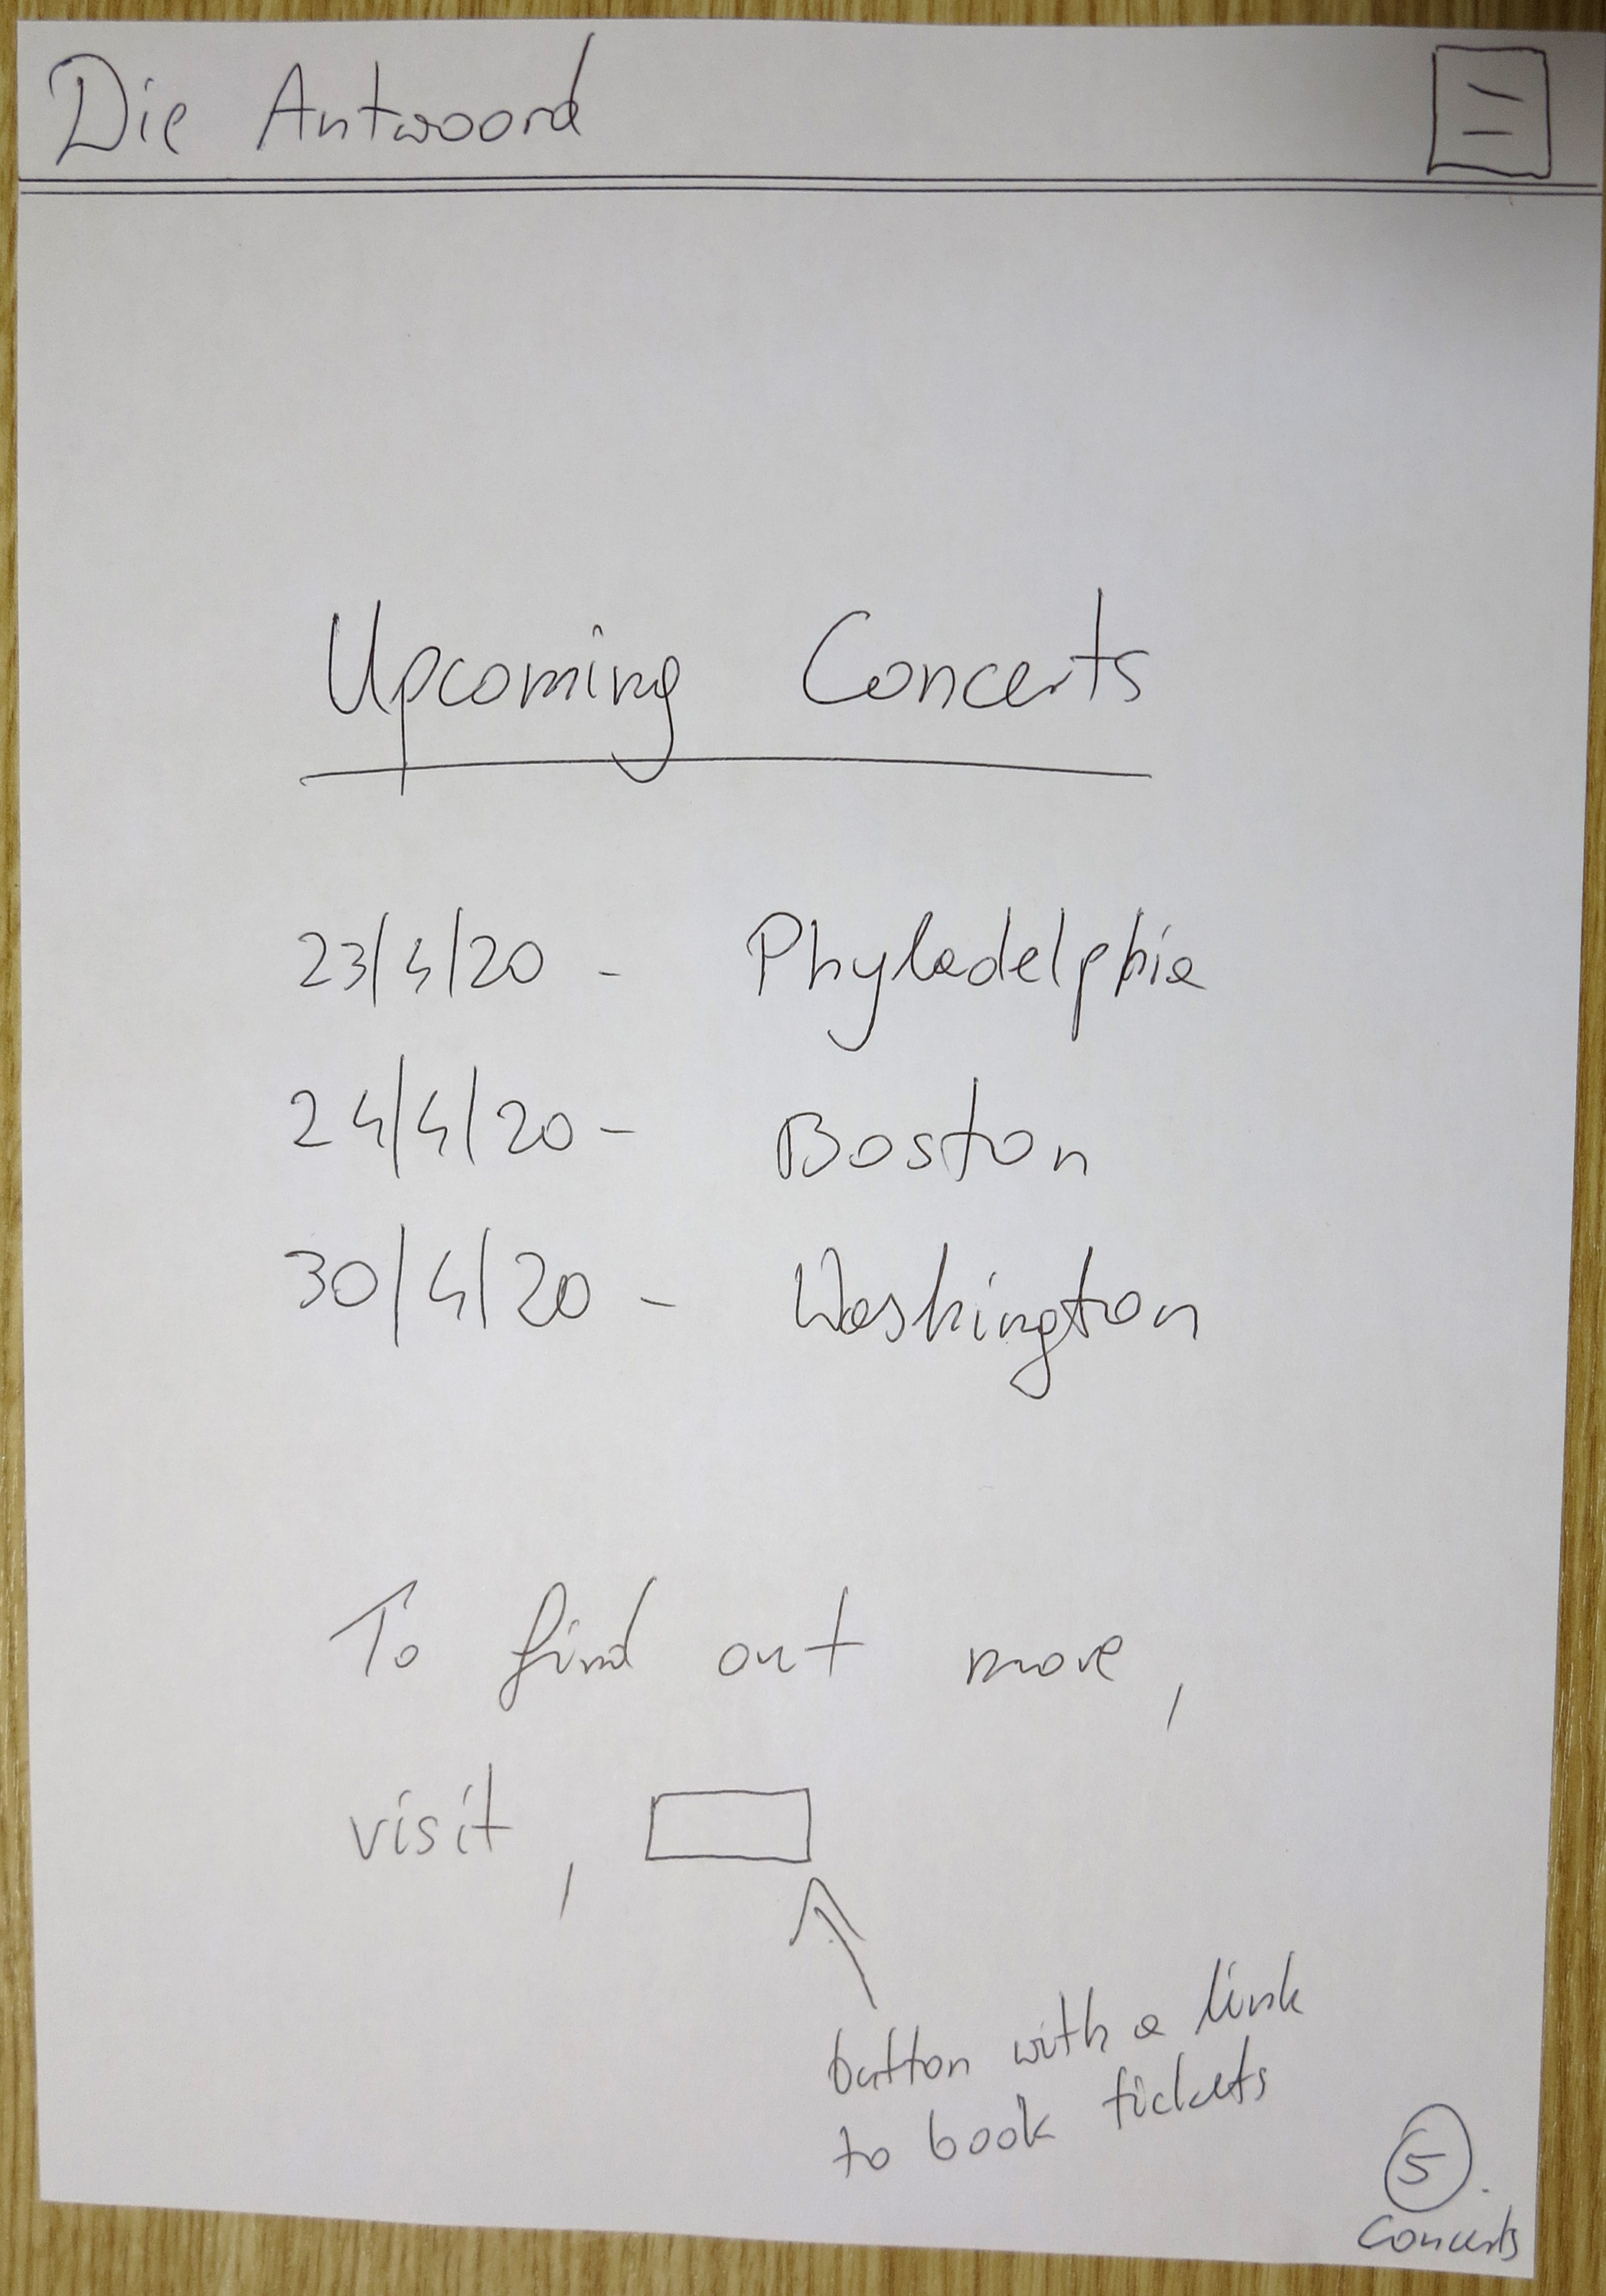 Die Antwoord
Upcoming Concerts
23/4/20 - Phyladelphia
24/4/20 - Boston
30/4/20 - Washington
To find out more,
visit,
button with a link
to book tickets
5.
Concerts